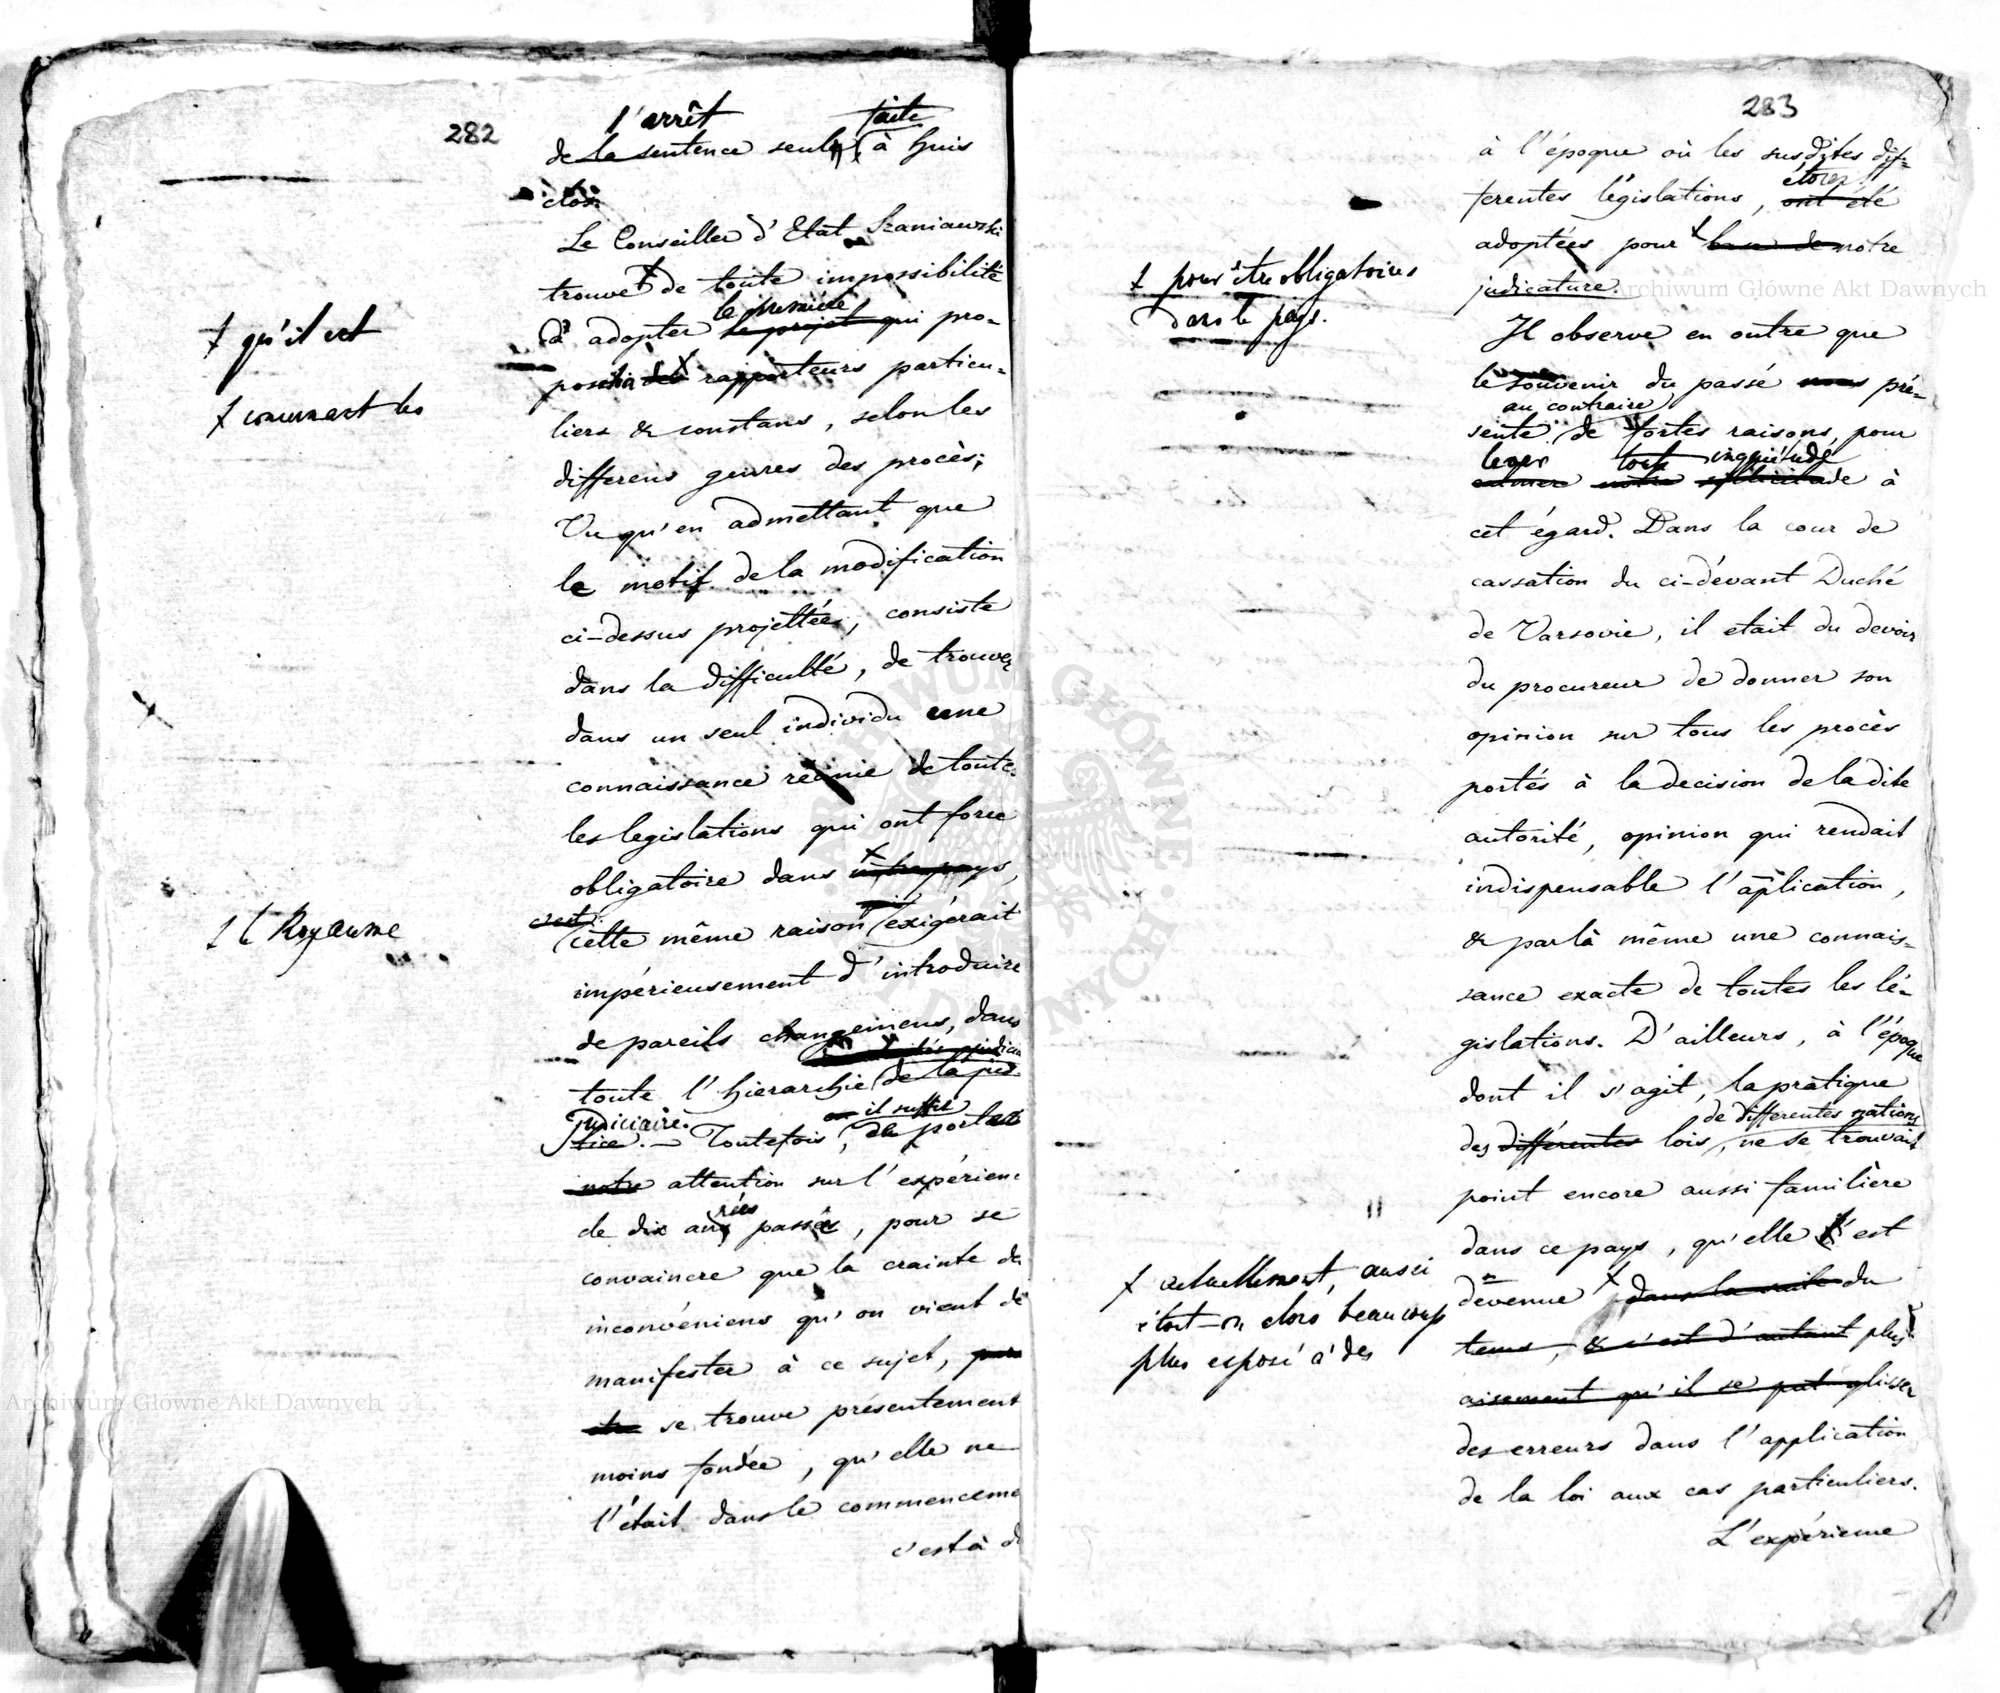 282
l'arrêt faite
de la sentence seule, à huis
clos.
Le Conseiller d'Etat Szaniawski
trouve de toute impossibilité
le premier
d'adopter le projet qui pro-
+ qu'il est
des rapporteurs particu-
+ concernant les
liers & constans, selon les
differens genres des procès;
Vu qu'en admettant que
le motif de la modification
ci-dessus projettée, consiste
dans la difficulté, de trouver
dans un seul individu une
connaissance reunie de toute
les legislations qui ont force
obligatoire dans notre pays,
+ le Royaume
cette même raison exigerait
impérieusement d'introduire
de pareils changemens, dans
toute l'hierarchie de la jus
judiciaire.
tice. — Toutefois, de porter
il suffit
notre attention sur l'expérienc
de dix années passées, pour se
convaincre que la crainte de
inconvéniens qu'on vient de
manifester à ce sujet,
se trouve présentement
moins fondée, qu'elle ne
l'était dans le commenceme
c'est à d
283
à l'époque où les susdites dif-
ferentes législations, ont été
adoptées pour notre
+ pour être obligatoires
dans le pays.
judicature.
Il observe en outre que
le souvenir du passé nous pré-
au contraire
sente de fortes raisons, pour
lever toute inquiétude
calmer notre sollicitude à
cet égard. Dans la cour de
cassation du ci-devant Duché
de Varsovie, il etait du devoir
du procureur de donner son
opinion sur tous les procès
portés à la decision de la dite
autorité, opinion qui rendait
indispensable l'application,
& par là même une connais-
sance exacte de toutes les lé-
gislations. D'ailleurs, à l'époque
dont il s'agit, la pratique
de differentes nations
des différentes lois, ne se trouvait
point encore aussi familière
dans ce pays, qu'elle l'est
devenue dans la suite du
+ actuellement, aussi
était-on alors beaucoup
plus exposé à des
tems, & c'est d'autant plus
aisement qu'il se put glisser
des erreurs dans l'application
de la loi aux cas particuliers.
L'expérience
Archiwum Główne Akt Dawnych
Archiwum Główne Akt Dawnych
ARCHIWUM GŁÓWNE AKT DAWNYCH